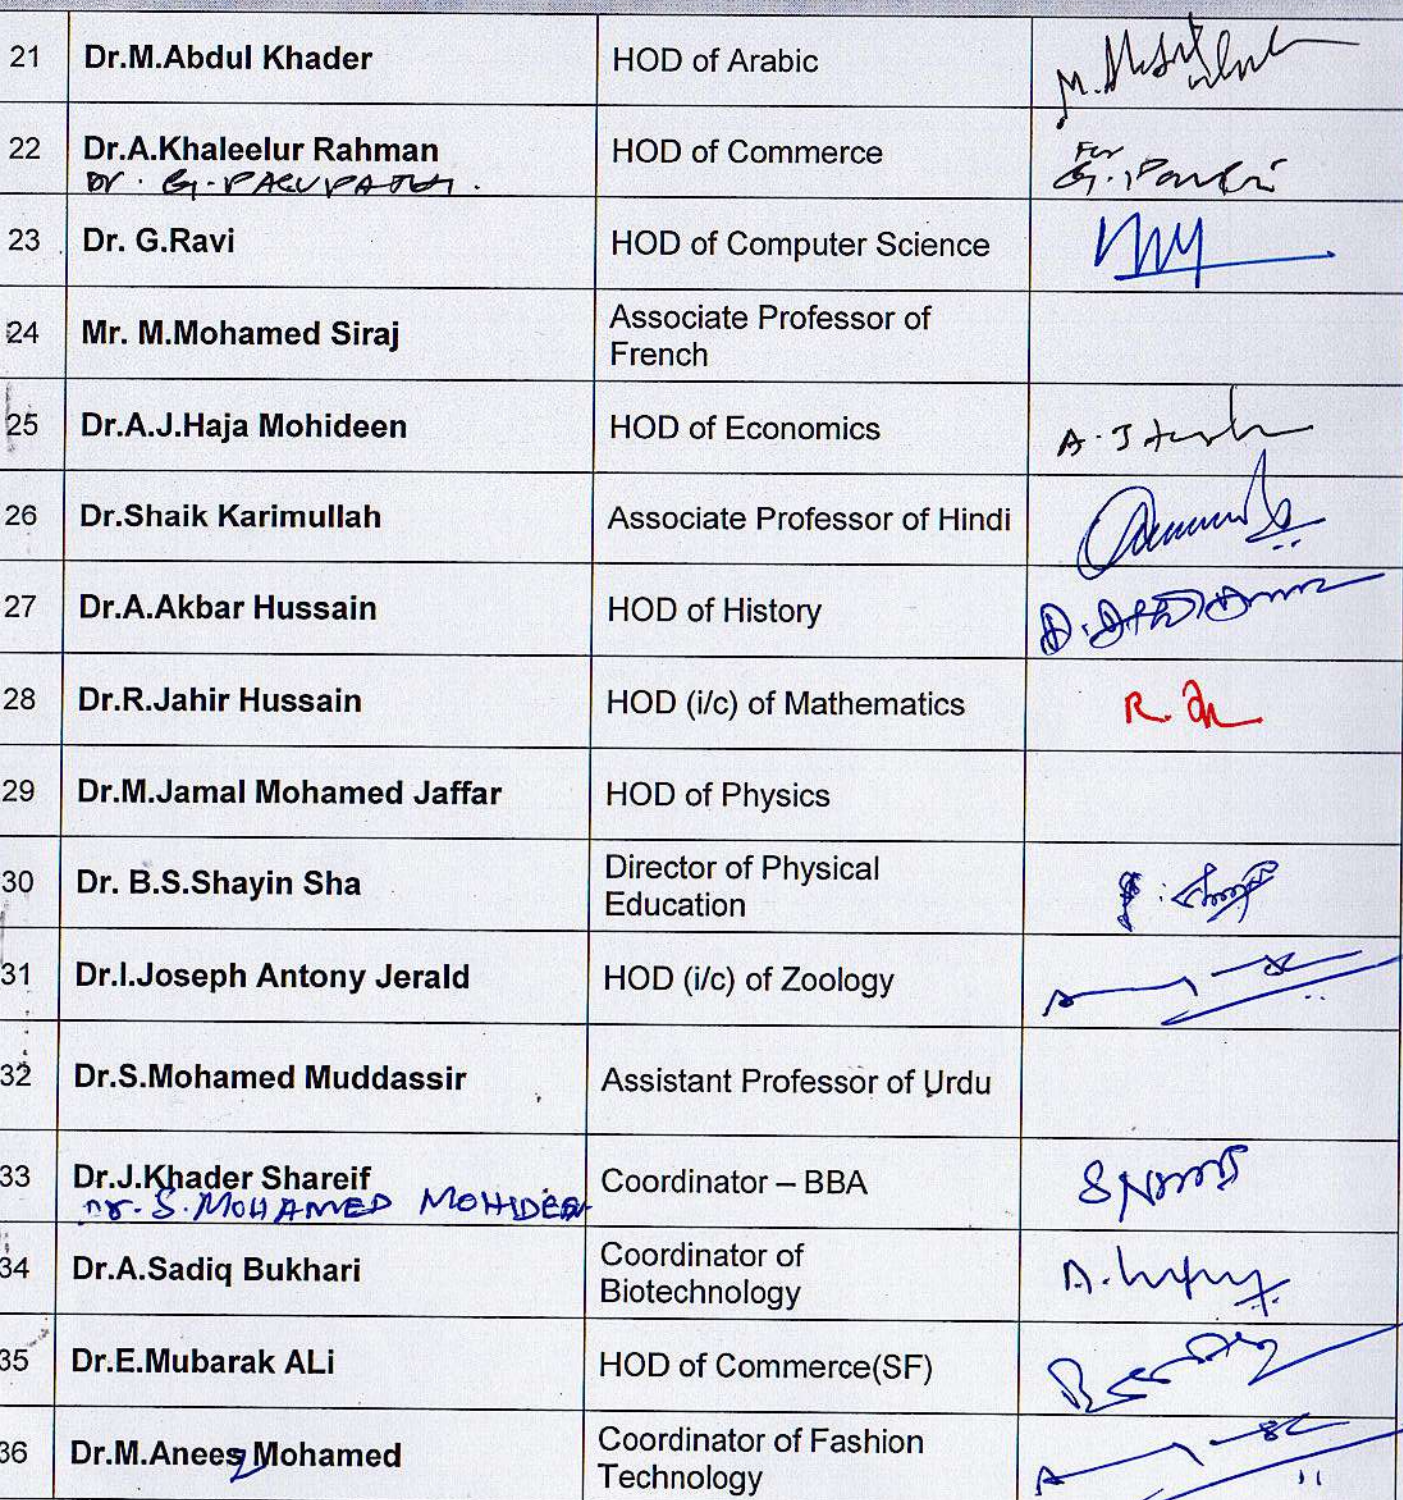 21 Dr.M.Abdul Khader HOD of Arabic
22 Dr.A.Khaleelur Rahman HOD of Commerce For
Dr. G.
23 Dr. G.Ravi HOD of Computer Science
24 Mr. M.Mohamed Siraj Associate Professor of
French
25 Dr.A.J.Haja Mohideen HOD of Economics
26 Dr.Shaik Karimullah Associate Professor of Hindi
27 Dr.A.Akbar Hussain HOD of History
28 Dr.R.Jahir Hussain HOD (i/c) of Mathematics
29 Dr.M.Jamal Mohamed Jaffar HOD of Physics
30 Dr. B.S.Shayin Sha Director of Physical
Education
31 Dr.I.Joseph Antony Jerald HOD (i/c) of Zoology
32 Dr.S.Mohamed Muddassir Assistant Professor of Urdu
33 Dr.J.Khader Shareif Coordinator – BBA
Dr. S. MOHAMED MOHIDEEN
34 Dr.A.Sadiq Bukhari Coordinator of
Biotechnology
35 Dr.E.Mubarak ALi HOD of Commerce(SF)
36 Dr.M.Anees Mohamed Coordinator of Fashion
Technology